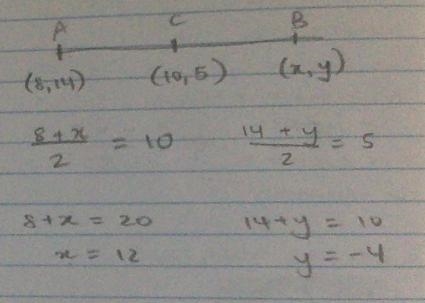 A C B
(8,14) (10,5) (x,y)
8+x/2 = 10 14+y/2 = 5
8+x = 20 14+y = 10
x = 12 y = -4